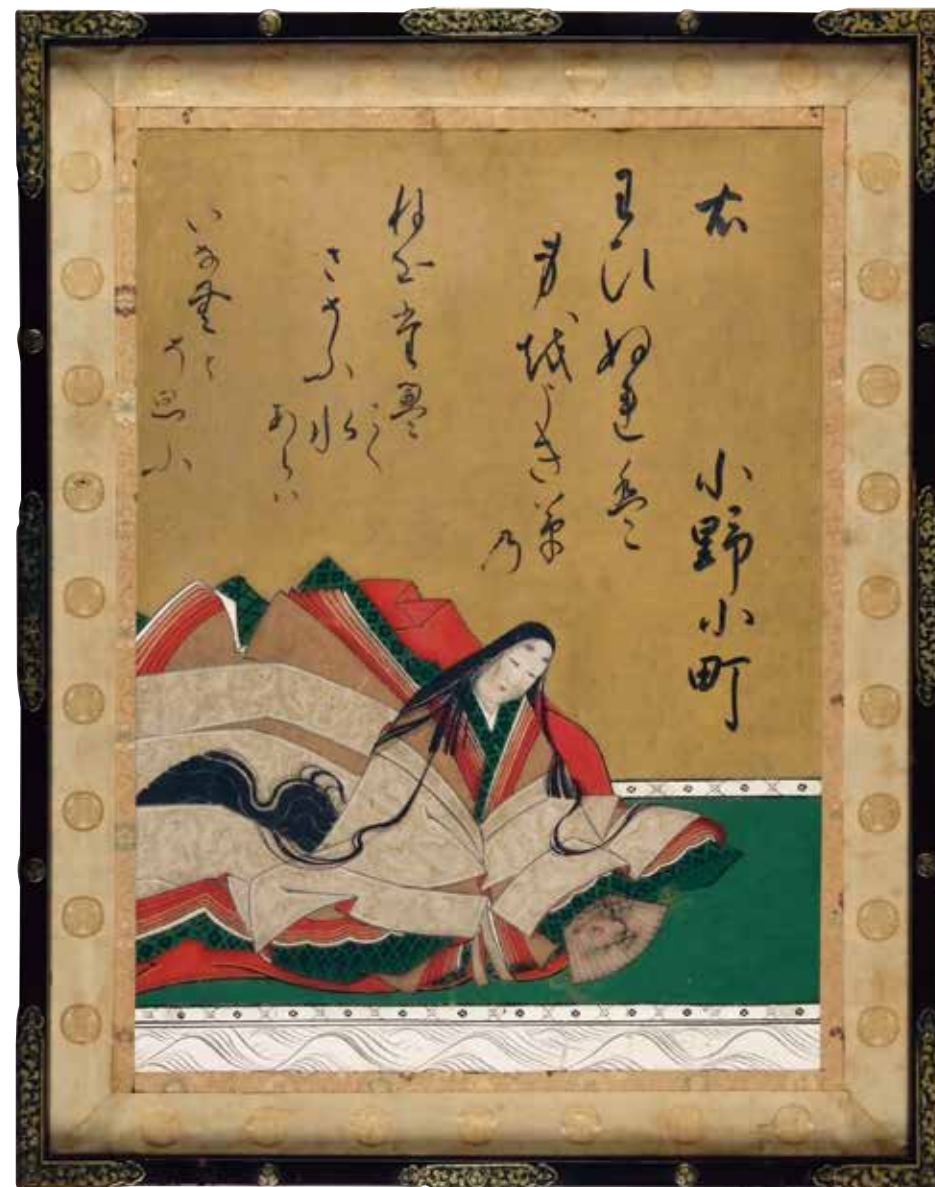 右　小野小町
わひぬれは
身をうき草
乃
ねをたえて
さそふ水
あらは
いなむと
そ思ふ